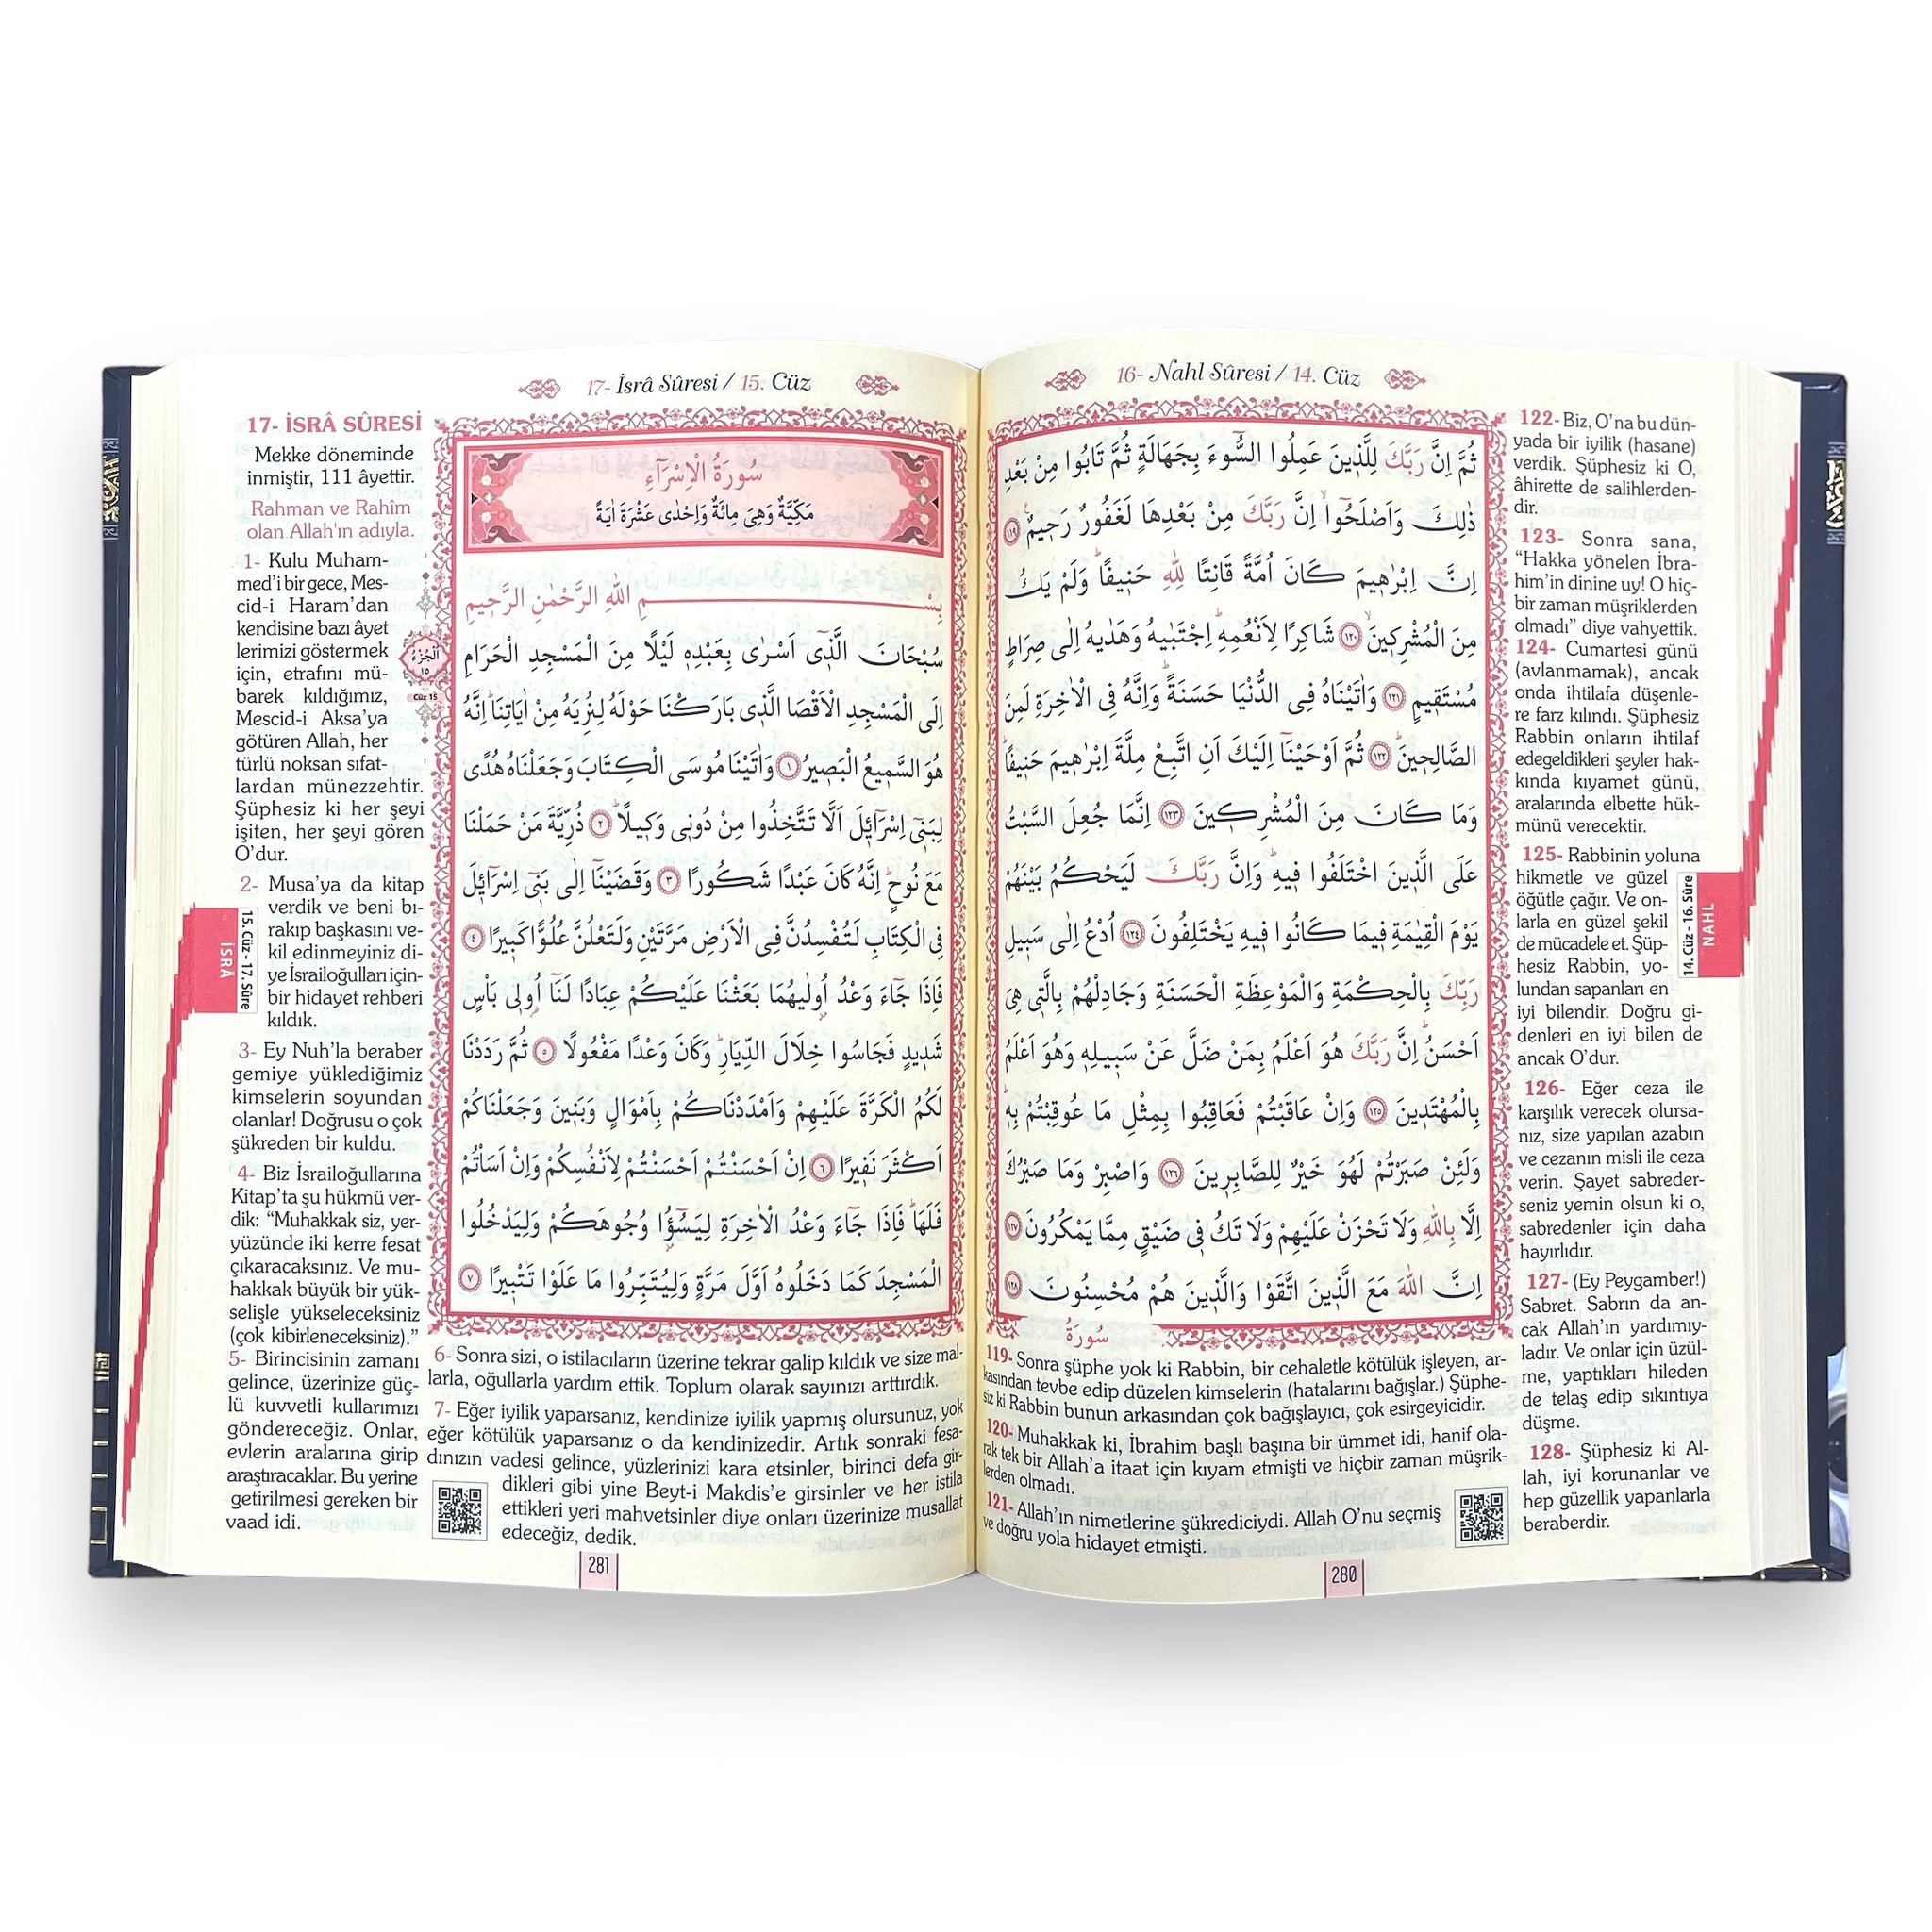 16- Nahl Sûresi / 14. Cüz
ثُمَّ اِنَّ رَبَّكَ لِلَّذ۪ينَ عَمِلُوا السُّٓوءَ بِجَهَالَةٍ ثُمَّ تَابُوا مِنْ بَعْدِ
ذٰلِكَ وَاَصْلَحُٓواۙ اِنَّ رَبَّكَ مِنْ بَعْدِهَا لَغَفُورٌ رَح۪يمٌ۟ ﴿١١٩﴾
اِنَّ اِبْرٰه۪يمَ كَانَ اُمَّةً قَانِتًا لِلّٰهِ حَن۪يفًاۜ وَلَمْ يَكُ
مِنَ الْمُشْرِك۪ينَۙ ﴿١٢٠﴾ شَاكِرًا لِاَنْعُمِهِۜ اِجْتَبٰيهُ وَهَدٰيهُ اِلٰى صِرَاطٍ
مُسْتَق۪يمٍ ﴿١٢١﴾ وَاٰتَيْنَاهُ فِي الدُّنْيَا حَسَنَةًۜ وَاِنَّهُ فِي الْاٰخِرَةِ لَمِنَ
الصَّالِح۪ينَۜ ﴿١٢٢﴾ ثُمَّ اَوْحَيْنَٓا اِلَيْكَ اَنِ اتَّبِعْ مِلَّةَ اِبْرٰه۪يمَ حَن۪يفًاۜ
وَمَا كَانَ مِنَ الْمُشْرِك۪ينَ ﴿١٢٣﴾ اِنَّمَا جُعِلَ السَّبْتُ
عَلَى الَّذ۪ينَ اخْتَلَفُوا ف۪يهِۜ وَاِنَّ رَبَّكَ لَيَحْكُمُ بَيْنَهُمْ
يَوْمَ الْقِيٰمَةِ ف۪يمَا كَانُوا ف۪يهِ يَخْتَلِفُونَ ﴿١٢٤﴾ اُدْعُ اِلٰى سَب۪يلِ
رَبِّكَ بِالْحِكْمَةِ وَالْمَوْعِظَةِ الْحَسَنَةِ وَجَادِلْهُمْ بِالَّت۪ي هِيَ
اَحْسَنُۜ اِنَّ رَبَّكَ هُوَ اَعْلَمُ بِمَنْ ضَلَّ عَنْ سَب۪يلِه۪ وَهُوَ اَعْلَمُ
بِالْمُهْتَد۪ينَ ﴿١٢٥﴾ وَاِنْ عَاقَبْتُمْ فَعَاقِبُوا بِمِثْلِ مَا عُوقِبْتُمْ بِه۪ۜ
وَلَئِنْ صَبَرْتُمْ لَهُوَ خَيْرٌ لِلصَّابِر۪ينَ ﴿١٢٦﴾ وَاصْبِرْ وَمَا صَبْرُكَ
اِلَّا بِاللّٰهِ وَلَا تَحْزَنْ عَلَيْهِمْ وَلَا تَكُ ف۪ي ضَيْقٍ مِمَّا يَمْكُرُونَ ﴿١٢٧﴾
اِنَّ اللّٰهَ مَعَ الَّذ۪ينَ اتَّقَوْا وَالَّذ۪ينَ هُمْ مُحْسِنُونَ ﴿١٢٨﴾
سُورَةُ
119- Sonra şüphe yok ki Rabbin, bir cehaletle kötülük işleyen, ar-
kasından tevbe edip düzelen kimselerin (hatalarını bağışlar.) Şüphe-
siz ki Rabbin bunun arkasından çok bağışlayıcı, çok esirgeyicidir.
120- Muhakkak ki, İbrahim başlı başına bir ümmet idi, hanif ola-
rak tek bir Allah'a itaat için kıyam etmişti ve hiçbir zaman müşrik-
lerden olmadı.
121- Allah'ın nimetlerine şükrediciydi. Allah O'nu seçmiş
ve doğru yola hidayet etmişti.
122- Biz, O'na bu dün-
yada bir iyilik (hasane)
verdik. Şüphesiz ki O,
âhirette de salihlerden-
dir.
123- Sonra sana,
“Hakka yönelen İbra-
him'in dinine uy! O hiç-
bir zaman müşriklerden
olmadı” diye vahyettik.
124- Cumartesi günü
(avlanmamak), ancak
onda ihtilafa düşenle-
re farz kılındı. Şüphesiz
Rabbin onların ihtilaf
edegeldikleri şeyler hak-
kında kıyamet günü,
aralarında elbette hük-
münü verecektir.
125- Rabbinin yoluna
hikmetle ve güzel
öğütle çağır. Ve on-
larla en güzel şekil
de mücadele et. Şüp-
hesiz Rabbin, yo-
lundan sapanları en
iyi bilendir. Doğru gi-
denleri en iyi bilen de
ancak O'dur.
126- Eğer ceza ile
karşılık verecek olursa-
nız, size yapılan azabın
ve cezanın misli ile ceza
verin. Şayet sabreder-
seniz yemin olsun ki o,
sabredenler için daha
hayırlıdır.
127- (Ey Peygamber!)
Sabret. Sabrın da an-
cak Allah'ın yardımıy-
ladır. Ve onlar için üzül-
me, yaptıkları hileden
de telaş edip sıkıntıya
düşme.
128- Şüphesiz ki Al-
lah, iyi korunanlar ve
hep güzellik yapanlarla
beraberdir.
14. Cüz - 16. Sûre
NAHL
280
17- İsrâ Sûresi / 15. Cüz
سُورَةُ الْاِسْرَٓاءِ
مَكِّيَّةٌ وَهِيَ مِائَةٌ وَاِحْدٰى عَشْرَةَ اٰيَةً
بِسْمِ اللّٰهِ الرَّحْمٰنِ الرَّح۪يمِ
سُبْحَانَ الَّذ۪ٓي اَسْرٰى بِعَبْدِه۪ لَيْلًا مِنَ الْمَسْجِدِ الْحَرَامِ
اِلَى الْمَسْجِدِ الْاَقْصَا الَّذ۪ي بَارَكْنَا حَوْلَهُ لِنُرِيَهُ مِنْ اٰيَاتِنَاۜ اِنَّهُ
هُوَ السَّم۪يعُ الْبَص۪يرُ ﴿١﴾ وَاٰتَيْنَا مُوسَى الْكِتَابَ وَجَعَلْنَاهُ هُدًى
لِبَن۪ٓي اِسْرَٓائ۪لَ اَلَّا تَتَّخِذُوا مِنْ دُون۪ي وَك۪يلًاۜ ﴿٢﴾ ذُرِّيَّةَ مَنْ حَمَلْنَا
مَعَ نُوحٍۜ اِنَّهُ كَانَ عَبْدًا شَكُورًا ﴿٣﴾ وَقَضَيْنَٓا اِلٰى بَن۪ٓي اِسْرَٓائ۪لَ
فِي الْكِتَابِ لَتُفْسِدُنَّ فِي الْاَرْضِ مَرَّتَيْنِ وَلَتَعْلُنَّ عُلُوًّا كَب۪يرًا ﴿٤﴾
فَاِذَا جَٓاءَ وَعْدُ اُو۫لٰيهُمَا بَعَثْنَا عَلَيْكُمْ عِبَادًا لَنَٓا اُو۬ل۪ي بَأْسٍ
شَد۪يدٍ فَجَاسُوا خِلَالَ الدِّيَارِۜ وَكَانَ وَعْدًا مَفْعُولًا ﴿٥﴾ ثُمَّ رَدَدْنَا
لَكُمُ الْكَرَّةَ عَلَيْهِمْ وَاَمْدَدْنَاكُمْ بِاَمْوَالٍ وَبَن۪ينَ وَجَعَلْنَاكُمْ
اَكْثَرَ نَف۪يرًا ﴿٦﴾ اِنْ اَحْسَنْتُمْ اَحْسَنْتُمْ لِاَنْفُسِكُمْ وَاِنْ اَسَأْتُمْ
فَلَهَاۜ فَاِذَا جَٓاءَ وَعْدُ الْاٰخِرَةِ لِيَسُٓؤُ۫ا وُجُوهَكُمْ وَلِيَدْخُلُوا
الْمَسْجِدَ كَمَا دَخَلُوهُ اَوَّلَ مَرَّةٍ وَلِيُتَبِّرُوا مَا عَلَوْا تَتْب۪يرًا ﴿٧﴾
اَلْجُزْءُ
١٥
Cüz 15
17- İSRÂ SÛRESİ
Mekke döneminde
inmiştir, 111 âyettir.
Rahman ve Rahîm
olan Allah'ın adıyla.
1- Kulu Muham-
med'i bir gece, Mes-
cid-i Haram'dan
kendisine bazı âyet
lerimizi göstermek
için, etrafını mü-
barek kıldığımız,
Mescid-i Aksa'ya
götüren Allah, her
türlü noksan sıfat-
lardan münezzehtir.
Şüphesiz ki her şeyi
işiten, her şeyi gören
O'dur.
2- Musa'ya da kitap
verdik ve beni bı-
rakıp başkasını ve-
kil edinmeyiniz di-
ye İsrailoğulları için-
bir hidayet rehberi
kıldık.
3- Ey Nuh'la beraber
gemiye yüklediğimiz
kimselerin soyundan
olanlar! Doğrusu o çok
şükreden bir kuldu.
4- Biz İsrailoğullarına
Kitap'ta şu hükmü ver-
dik: “Muhakkak siz, yer-
yüzünde iki kerre fesat
çıkaracaksınız. Ve mu-
hakkak büyük bir yük-
selişle yükseleceksiniz
(çok kibirleneceksiniz).”
5- Birincisinin zamanı
gelince, üzerinize güç-
lü kuvvetli kullarımızı
göndereceğiz. Onlar,
evlerin aralarına girip
araştıracaklar. Bu yerine
getirilmesi gereken bir
vaad idi.
6- Sonra sizi, o istilacıların üzerine tekrar galip kıldık ve size mal-
larla, oğullarla yardım ettik. Toplum olarak sayınızı arttırdık.
7- Eğer iyilik yaparsanız, kendinize iyilik yapmış olursunuz, yok
eğer kötülük yaparsanız o da kendinizedir. Artık sonraki fesa-
dınızın vadesi gelince, yüzlerinizi kara etsinler, birinci defa gir-
dikleri gibi yine Beyt-i Makdis'e girsinler ve her istila
ettikleri yeri mahvetsinler diye onları üzerinize musallat
edeceğiz, dedik.
15. Cüz - 17. Sûre
İSRÂ
281